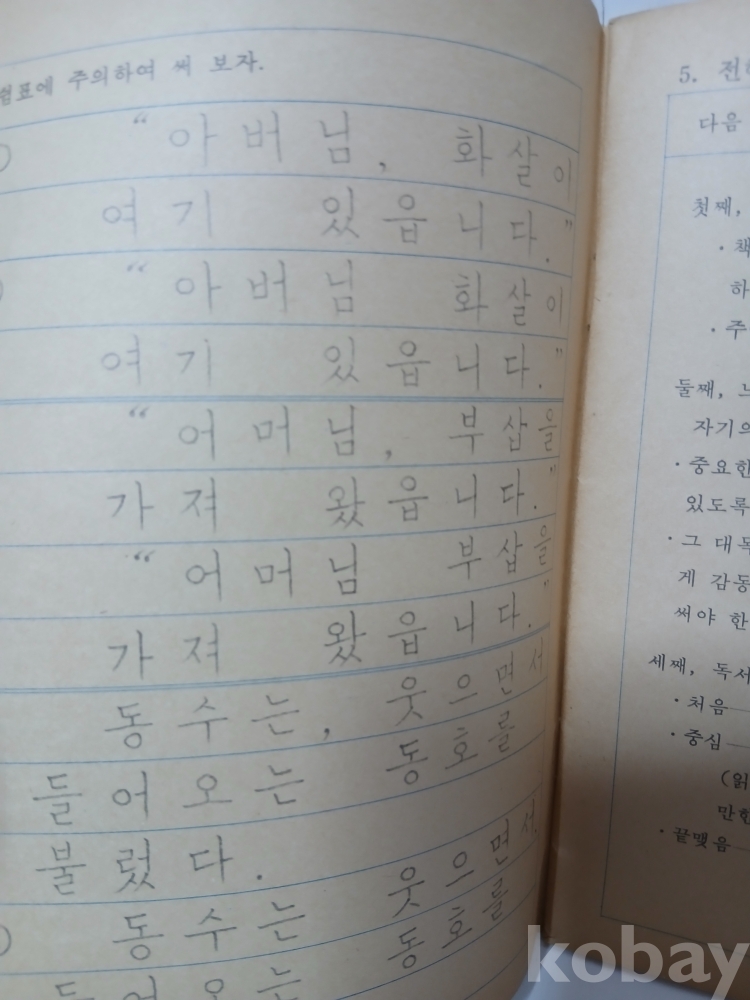 쉼표에 주의하여 써 보자.
“아버님, 화살이
여기 있읍니다.”
“아버님 화살이
여기 있읍니다.”
“어머님, 부삽을
가져 왔읍니다.”
“어머님 부삽을
가져 왔읍니다.”
동수는, 웃으면서
들어오는 동호를
불렀다.
동수는 웃으면서
들어오는 동호를
5. 전
다음
첫째,
· 책
하
· 주
둘째, 느
자기의
· 중요한
있도록
· 그 대목
게 감동
써야 한
세째, 독서
· 처음
· 중심
(읽
만한
· 끝맺음
kobay